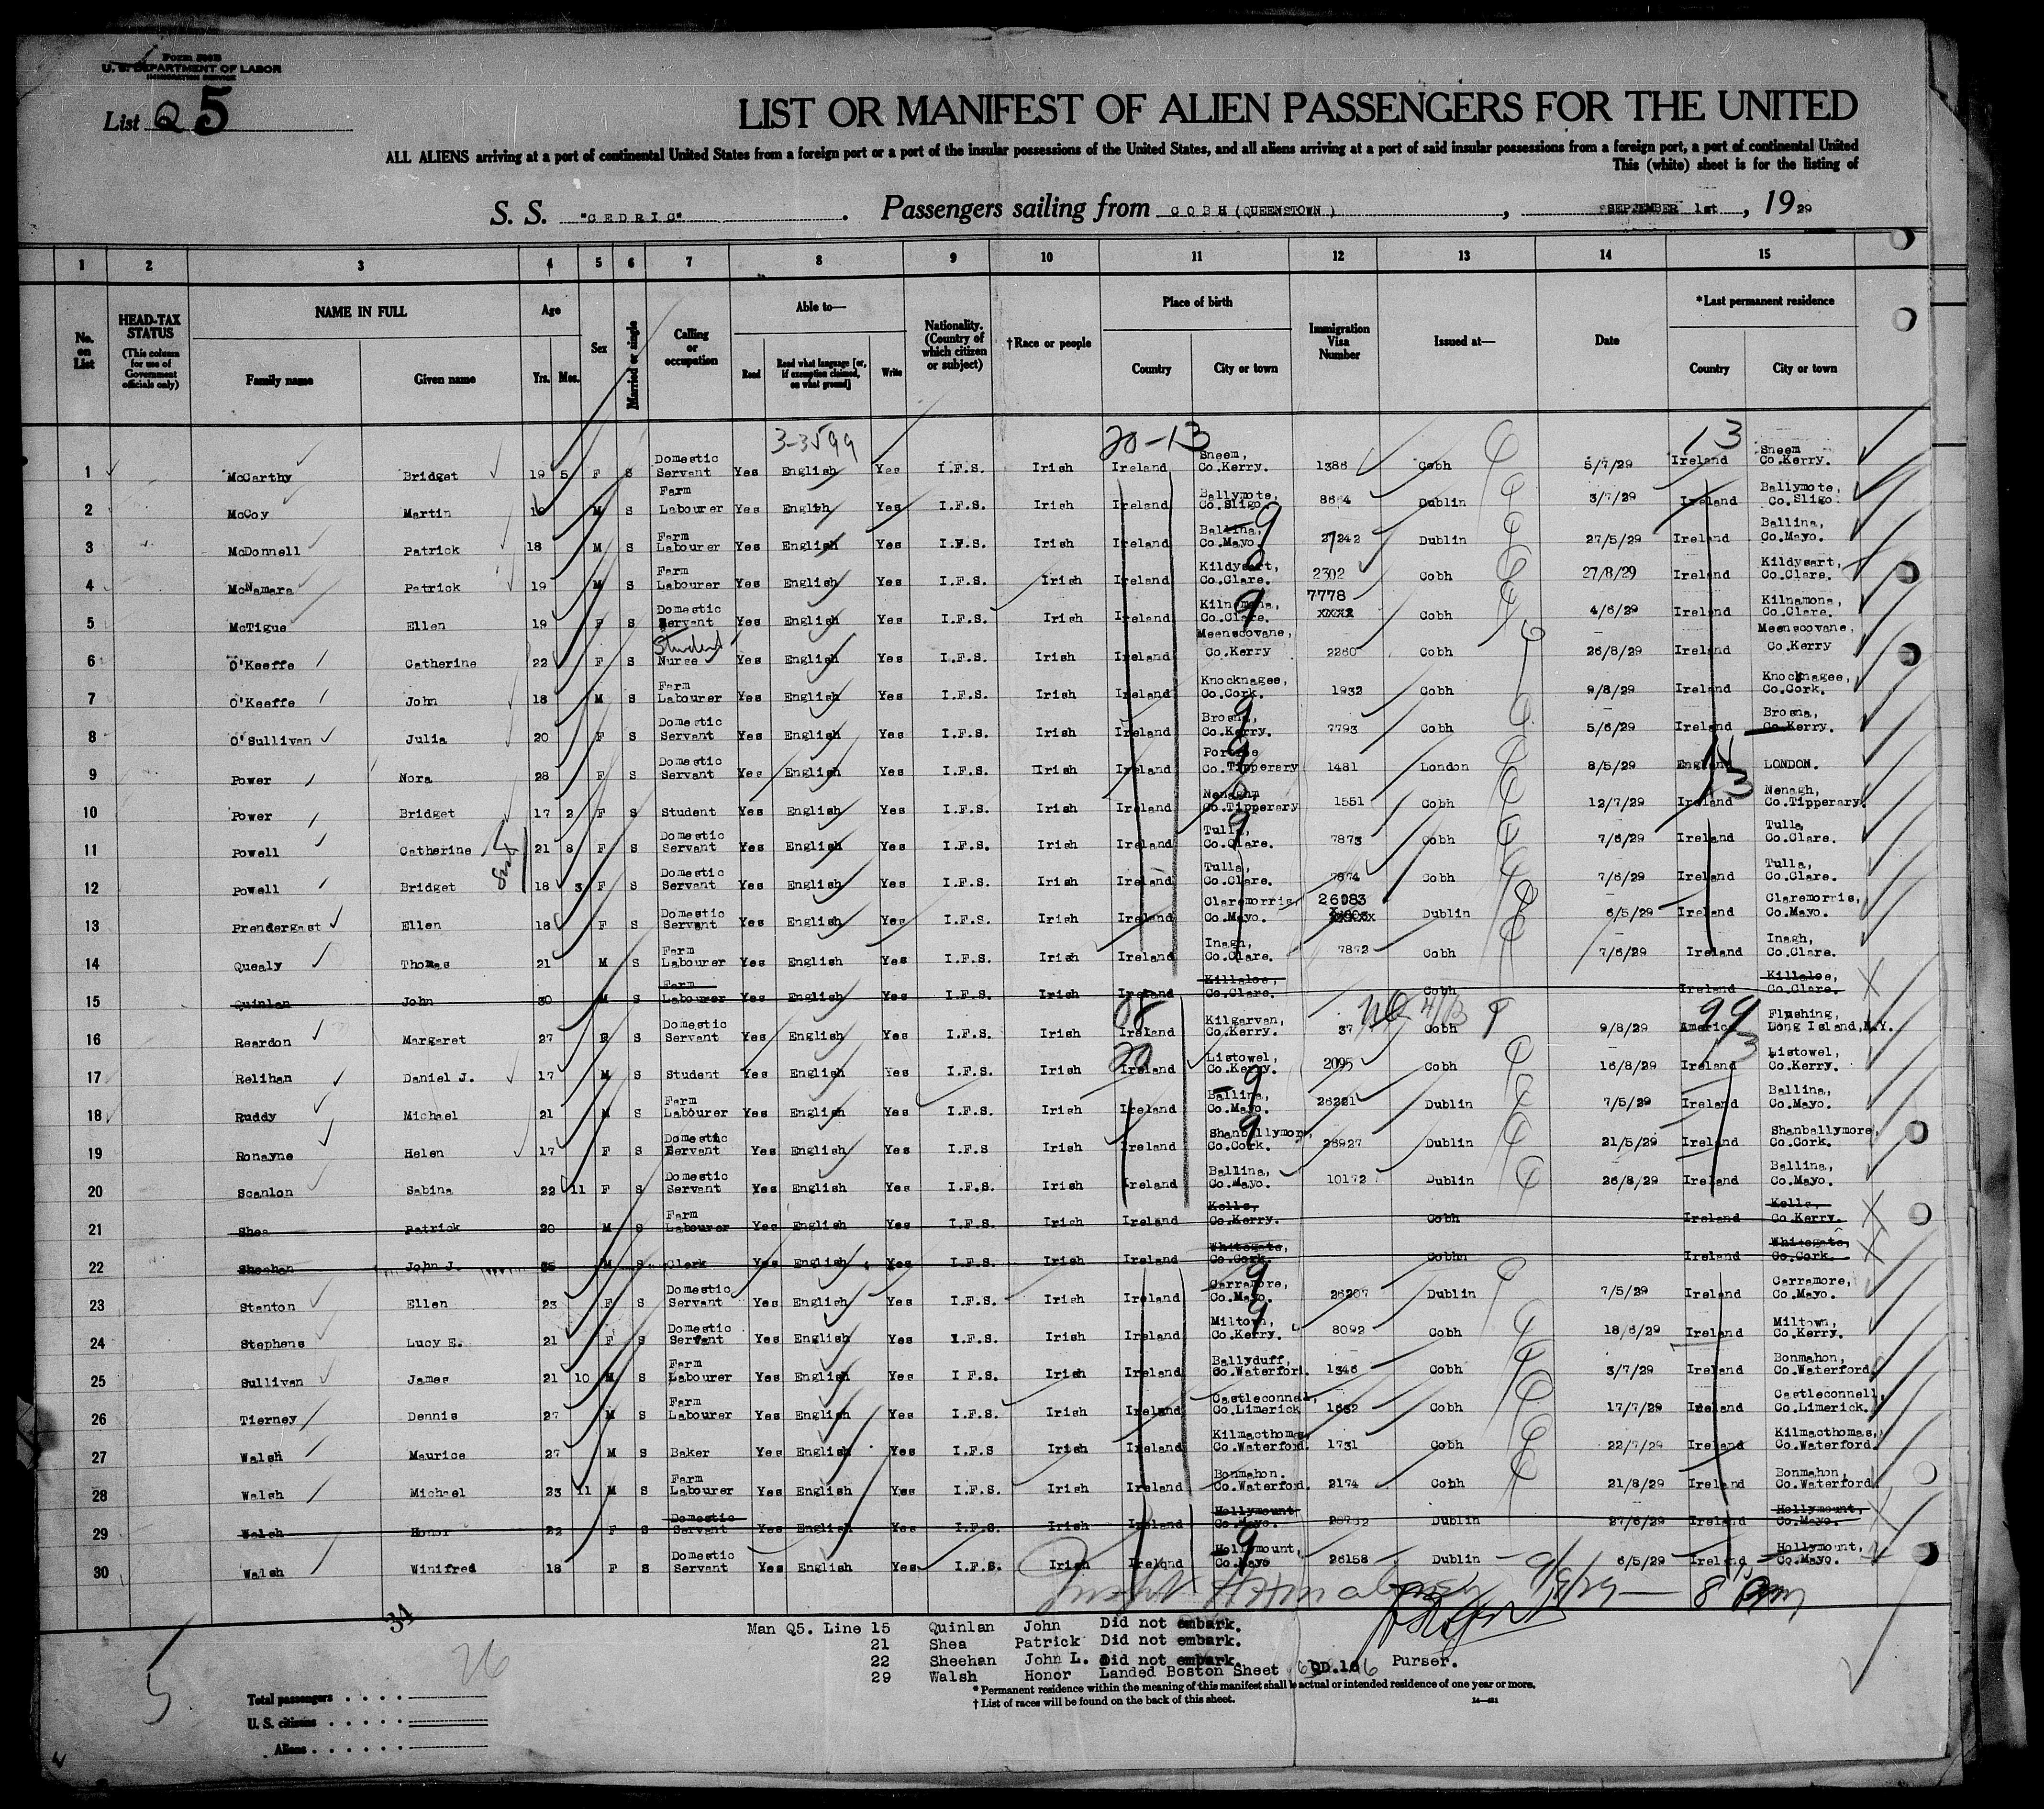 Form 500B
U. S. DEPARTMENT OF LABOR
IMMIGRATION SERVICE
List Q 5
LIST OR MANIFEST OF ALIEN PASSENGERS FOR THE UNITED
ALL ALIENS arriving at a port of continental United States from a foreign port or a port of the insular possessions of the United States, and all aliens arriving at a port of said insular possessions from a foreign port, a port of continental United
This (white) sheet is for the listing of
S. S. "CEDRIC". Passengers sailing from COBH (QUEENSTOWN), SEPTEMBER 1st, 1929
1 2 3 4 5 6 7 8 9 10 11 12 13 14 15
No. on List
HEAD-TAX STATUS (This column for use of Government officials only)
NAME IN FULL
Family name Given name
Age
Yrs. Mos.
Sex
Married or single
Calling or occupation
Able to—
Read Read what language [or, if exemption claimed, on what ground] Write
Nationality. (Country of which citizen or subject)
†Race or people
Place of birth
Country City or town
Immigration Visa Number
Issued at—
Date
*Last permanent residence
Country City or town
3-3599 20-13 13
1 McCarthy Bridget 19 5 F S Domestic Servant Yes English Yes I.F.S. Irish Ireland Sneem, Co.Kerry. 1386 Cobh 5/7/29 Ireland Sneem Co.Kerry.
2 McCoy Martin 19 M S Farm Labourer Yes English Yes I.F.S. Irish Ireland Ballymote, Co.Sligo. 8664 Dublin 3/7/29 Ireland Ballymote, Co.Sligo
3 McDonnell Patrick 18 M S Farm Labourer Yes English Yes I.F.S. Irish Ireland Ballina, Co.Mayo. 27242 Dublin 27/5/29 Ireland Ballina, Co.Mayo.
4 McNamara Patrick 19 M S Farm Labourer Yes English Yes I.F.S. Irish Ireland Kildysart, Co.Clare. 2302 Cobh 27/8/29 Ireland Kildysart, Co.Clare.
5 McTigue Ellen 19 F S Domestic Servant Yes English Yes I.F.S. Irish Ireland Kilnamona, Co.Clare. 7778 Cobh 4/6/29 Ireland Kilnamona, Co.Clare.
6 O'Keeffe Catherine 22 F S Student Nurse Yes English Yes I.F.S. Irish Ireland Meenscovane, Co.Kerry 2260 Cobh 26/8/29 Ireland Meenscovane, Co.Kerry
7 O'Keeffe John 18 M S Farm Labourer Yes English Yes I.F.S. Irish Ireland Knocknagee, Co.Cork. 1932 Cobh 9/8/29 Ireland Knocknagee, Co.Cork.
8 O'Sullivan Julia 20 F S Domestic Servant Yes English Yes I.F.S. Irish Ireland Brosna, Co.Kerry. 7793 Cobh 5/6/29 Ireland Brosna, Co.Kerry.
9 Power Nora 28 F S Domestic Servant Yes English Yes I.F.S. Irish Ireland Portroe Co.Tipperary 1481 London 8/5/29 England LONDON.
10 Power Bridget 17 2 F S Student Yes English Yes I.F.S. Irish Ireland Nenaghm Co.Tipperary 1551 Cobh 12/7/29 Ireland Nenagh, Co.Tipperary.
11 Powell Catherine 21 8 F S Domestic Servant Yes English Yes I.F.S. Irish Ireland Tulla, Co.Clare. 7873 Cobh 7/6/29 Ireland Tulla, Co.Clare.
12 Powell Bridget 18 3 F S Domestic Servant Yes English Yes I.F.S. Irish Ireland Tulla, Co.Clare. 7874 Cobh 7/6/29 Ireland Tulla, Co.Clare.
13 Prendergast Ellen 18 F S Domestic Servant Yes English Yes I.F.S. Irish Ireland Claremorris, Co.Mayo. 26083 Dublin 6/5/29 Ireland Claremorris, Co.Mayo.
14 Quealy Thomas 21 M S Farm Labourer Yes English Yes I.F.S. Irish Ireland Inagh, Co.Clare. 7872 Cobh 7/6/29 Ireland Inagh, Co.Clare.
15 Quinlan John 30 M S Farm Labourer Yes English Yes I.F.S. Irish Ireland Killaloe, Co.Clare. Cobh Ireland Killaloe, Co.Clare.
16 Reardon Margaret 27 S Domestic Servant Yes English Yes I.F.S. Irish Ireland Kilgarvan, Co.Kerry. 37 NQ 4/13 Cobh 9/8/29 America Flushing, Long Island,N.Y.
17 Relihan Daniel J. 17 M S Student Yes English Yes I.F.S. Irish Ireland Listowel, Co.Kerry. 2095 Cobh 16/8/29 Ireland Listowel, Co.Kerry.
18 Ruddy Michael 21 M S Farm Labourer Yes English Yes I.F.S. Irish Ireland Ballina, Co.Mayo. 26221 Dublin 7/5/29 Ireland Ballina, Co.Mayo.
19 Ronayne Helen 17 F S Domestic Servant Yes English Yes I.F.S Irish Ireland Shanballymore, Co.Cork. 26927 Dublin 21/5/29 Ireland Shanballymore, Co.Cork.
20 Scanlon Sabina 22 11 F S Domestic Servant Yes English Yes I.F.S. Irish Ireland Ballina, Co.Mayo. 10172 Dublin 26/8/29 Ireland Ballina, Co.Mayo.
21 Shea Patrick 20 M S Farm Labourer Yes English Yes I.F.S. Irish Ireland Kells, Co.Kerry. Cobh Ireland Kells, Co.Kerry.
22 Sheehan John J. 35 M S Clerk Yes English Yes I.F.S. Irish Ireland Whitegate, Co.Cork. Cobhn Ireland Whitegate, Co.Cork.
23 Stanton Ellen 23 F S Domestic Servant Yes English Yes I.F.S. Irish Ireland Carramore, Co.Mayo. 26207 Dublin 7/5/29 Ireland Carramore, Co.Mayo.
24 Stephens Lucy E. 21 F S Domestic Servant Yes English Yes I.F.S. Irish Ireland Miltown, Co.Kerry. 8092 Cobh 18/6/29 Ireland Miltown, Co.Kerry.
25 Sullivan James 21 10 M S Farm Labourer Yes English Yes I F.S. Irish Ireland Ballyduff, Co.Waterford. 1346 Cobh 3/7/29 Ireland Bonmahon, Co.Waterford
26 Tierney Dennis 27 M S Farm Labourer Yes English Yes I.F.S. Irish Ireland Castleconnell, Co.Limerick 1632 Cobh 17/7/29 Ireland Castleconnell, Co.Limerick.
27 Walsh Maurice 27 M S Baker Yes English Yes I.F.S Irish Ireland Kilmacthomas, Co.Waterford. 1731 Cobh 22/7/29 Ireland Kilmacthomas, Co.Waterford
28 Walsh Michael 23 11 M S Farm Labourer Yes English Yes I.F.S. Irish Ireland Bonmahon. Co.Waterford. 2174 Cobh 21/8/29 Ireland Bonmahon, Co.Waterford
29 Walsh Honor 22 F S Domestic Servant Yes English Yes I.F.S. Irish Ireland Hollymount Co.Mayo. Dublin 27/6/29 Ireland Hollymount, Co.Mayo.
30 Walsh Winifred 18 F S Domestic Servant Yes English Yes I.F.S. Irish Ireland Hollymount, Co.Mayo 26158 Dublin 6/5/29 Ireland Hollymount, Co.Mayo.
9/9/29 — 8 pm
34
Man Q5. Line 15 Quinlan John Did not embark.
21 Shea Patrick Did not embark.
22 Sheehan John L. Did not embark.
29 Walsh Honor Landed Boston Sheet QD.16
Purser.
26
5
* Permanent residence within the meaning of this manifest shall be actual or intended residence of one year or more.
† List of races will be found on the back of this sheet.
14—421
Total passengers
U. S. citizens
Aliens